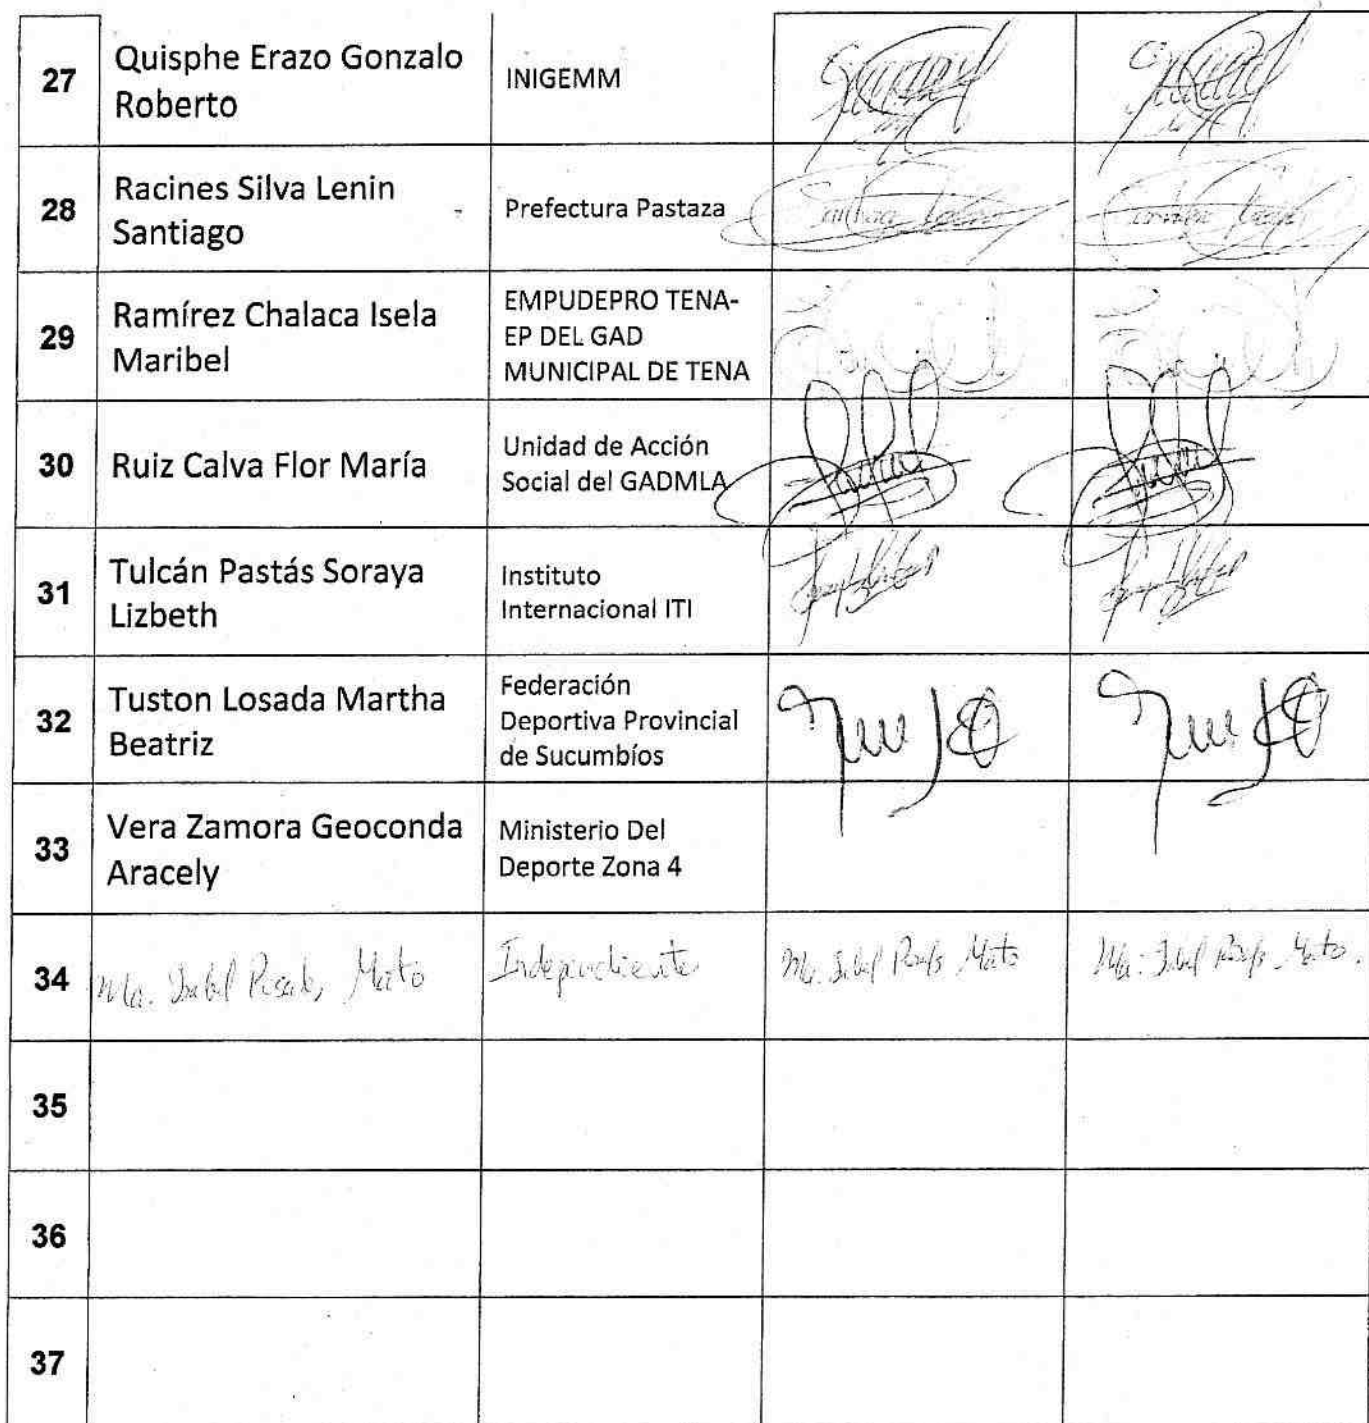 27
Quisphe Erazo Gonzalo
Roberto
INIGEMM
28
Racines Silva Lenin
Santiago
Prefectura Pastaza
29
Ramírez Chalaca Isela
Maribel
EMPUDEPRO TENA-
EP DEL GAD
MUNICIPAL DE TENA
30
Ruiz Calva Flor María
Unidad de Acción
Social del GADMLA
31
Tulcán Pastás Soraya
Lizbeth
Instituto
Internacional ITI
32
Tuston Losada Martha
Beatriz
Federación
Deportiva Provincial
de Sucumbíos
33
Vera Zamora Geoconda
Aracely
Ministerio Del
Deporte Zona 4
34
Ma. Isabel
Independiente
35
36
37